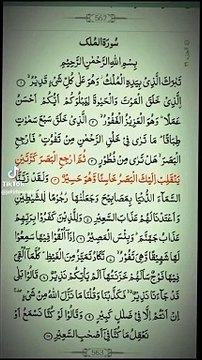 562
سُورَةُ الْمُلْكِ
بِسْمِ اللّٰهِ الرَّحْمٰنِ الرَّحِيْمِ
تَبَارَكَ الَّذِي بِيَدِهِ الْمُلْكُ وَهُوَ عَلٰى كُلِّ شَيْءٍ قَدِيرٌ ١
الَّذِي خَلَقَ الْمَوْتَ وَالْحَيٰوةَ لِيَبْلُوَكُمْ اَيُّكُمْ اَحْسَنُ
عَمَلًا وَهُوَ الْعَزِيزُ الْغَفُورُ ٢ الَّذِي خَلَقَ سَبْعَ سَمٰوَاتٍ
طِبَاقًا مَا تَرٰى فِي خَلْقِ الرَّحْمٰنِ مِنْ تَفَاوُتٍ فَارْجِعِ
الْبَصَرَ هَلْ تَرٰى مِنْ فُطُورٍ ٣ ثُمَّ ارْجِعِ الْبَصَرَ كَرَّتَيْنِ
يَنْقَلِبْ اِلَيْكَ الْبَصَرُ خَاسِئًا وَهُوَ حَسِيرٌ ٤ وَلَقَدْ زَيَّنَّا
السَّمَاءَ الدُّنْيَا بِمَصَابِيحَ وَجَعَلْنَاهَا رُجُومًا لِلشَّيَاطِينِ
وَاَعْتَدْنَا لَهُمْ عَذَابَ السَّعِيرِ ٥ وَلِلَّذِينَ كَفَرُوا بِرَبِّهِمْ
عَذَابُ جَهَنَّمَ وَبِئْسَ الْمَصِيرُ ٦ اِذَا اُلْقُوا فِيهَا سَمِعُوا
لَهَا شَهِيقًا وَهِيَ تَفُورُ ٧ تَكَادُ تَمَيَّزُ مِنَ الْغَيْظِ كُلَّمَا اُلْقِيَ
فِيهَا فَوْجٌ سَاَلَهُمْ خَزَنَتُهَا اَلَمْ يَأْتِكُمْ نَذِيرٌ ٨ قَالُوا بَلٰى
قَدْ جَاءَنَا نَذِيرٌ فَكَذَّبْنَا وَقُلْنَا مَا نَزَّلَ اللّٰهُ مِنْ شَيْءٍ
اِنْ اَنْتُمْ اِلَّا فِي ضَلَالٍ كَبِيرٍ ٩ وَقَالُوا لَوْ كُنَّا نَسْمَعُ اَوْ
نَعْقِلُ مَا كُنَّا فِي اَصْحَابِ السَّعِيرِ ١٠
563
TikTok